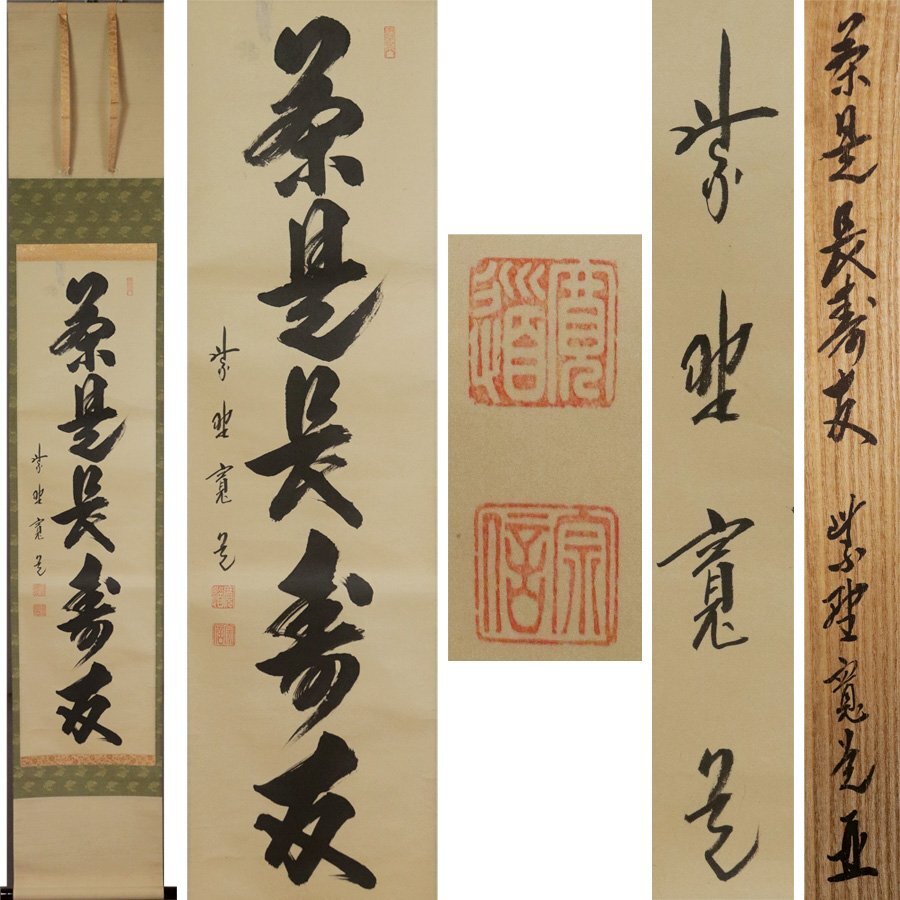 茶是長寿友
紫野寛道
茶是長寿友
紫野寛道
寛道
宗信
紫野寛道
茶是長寿友 紫野寛道